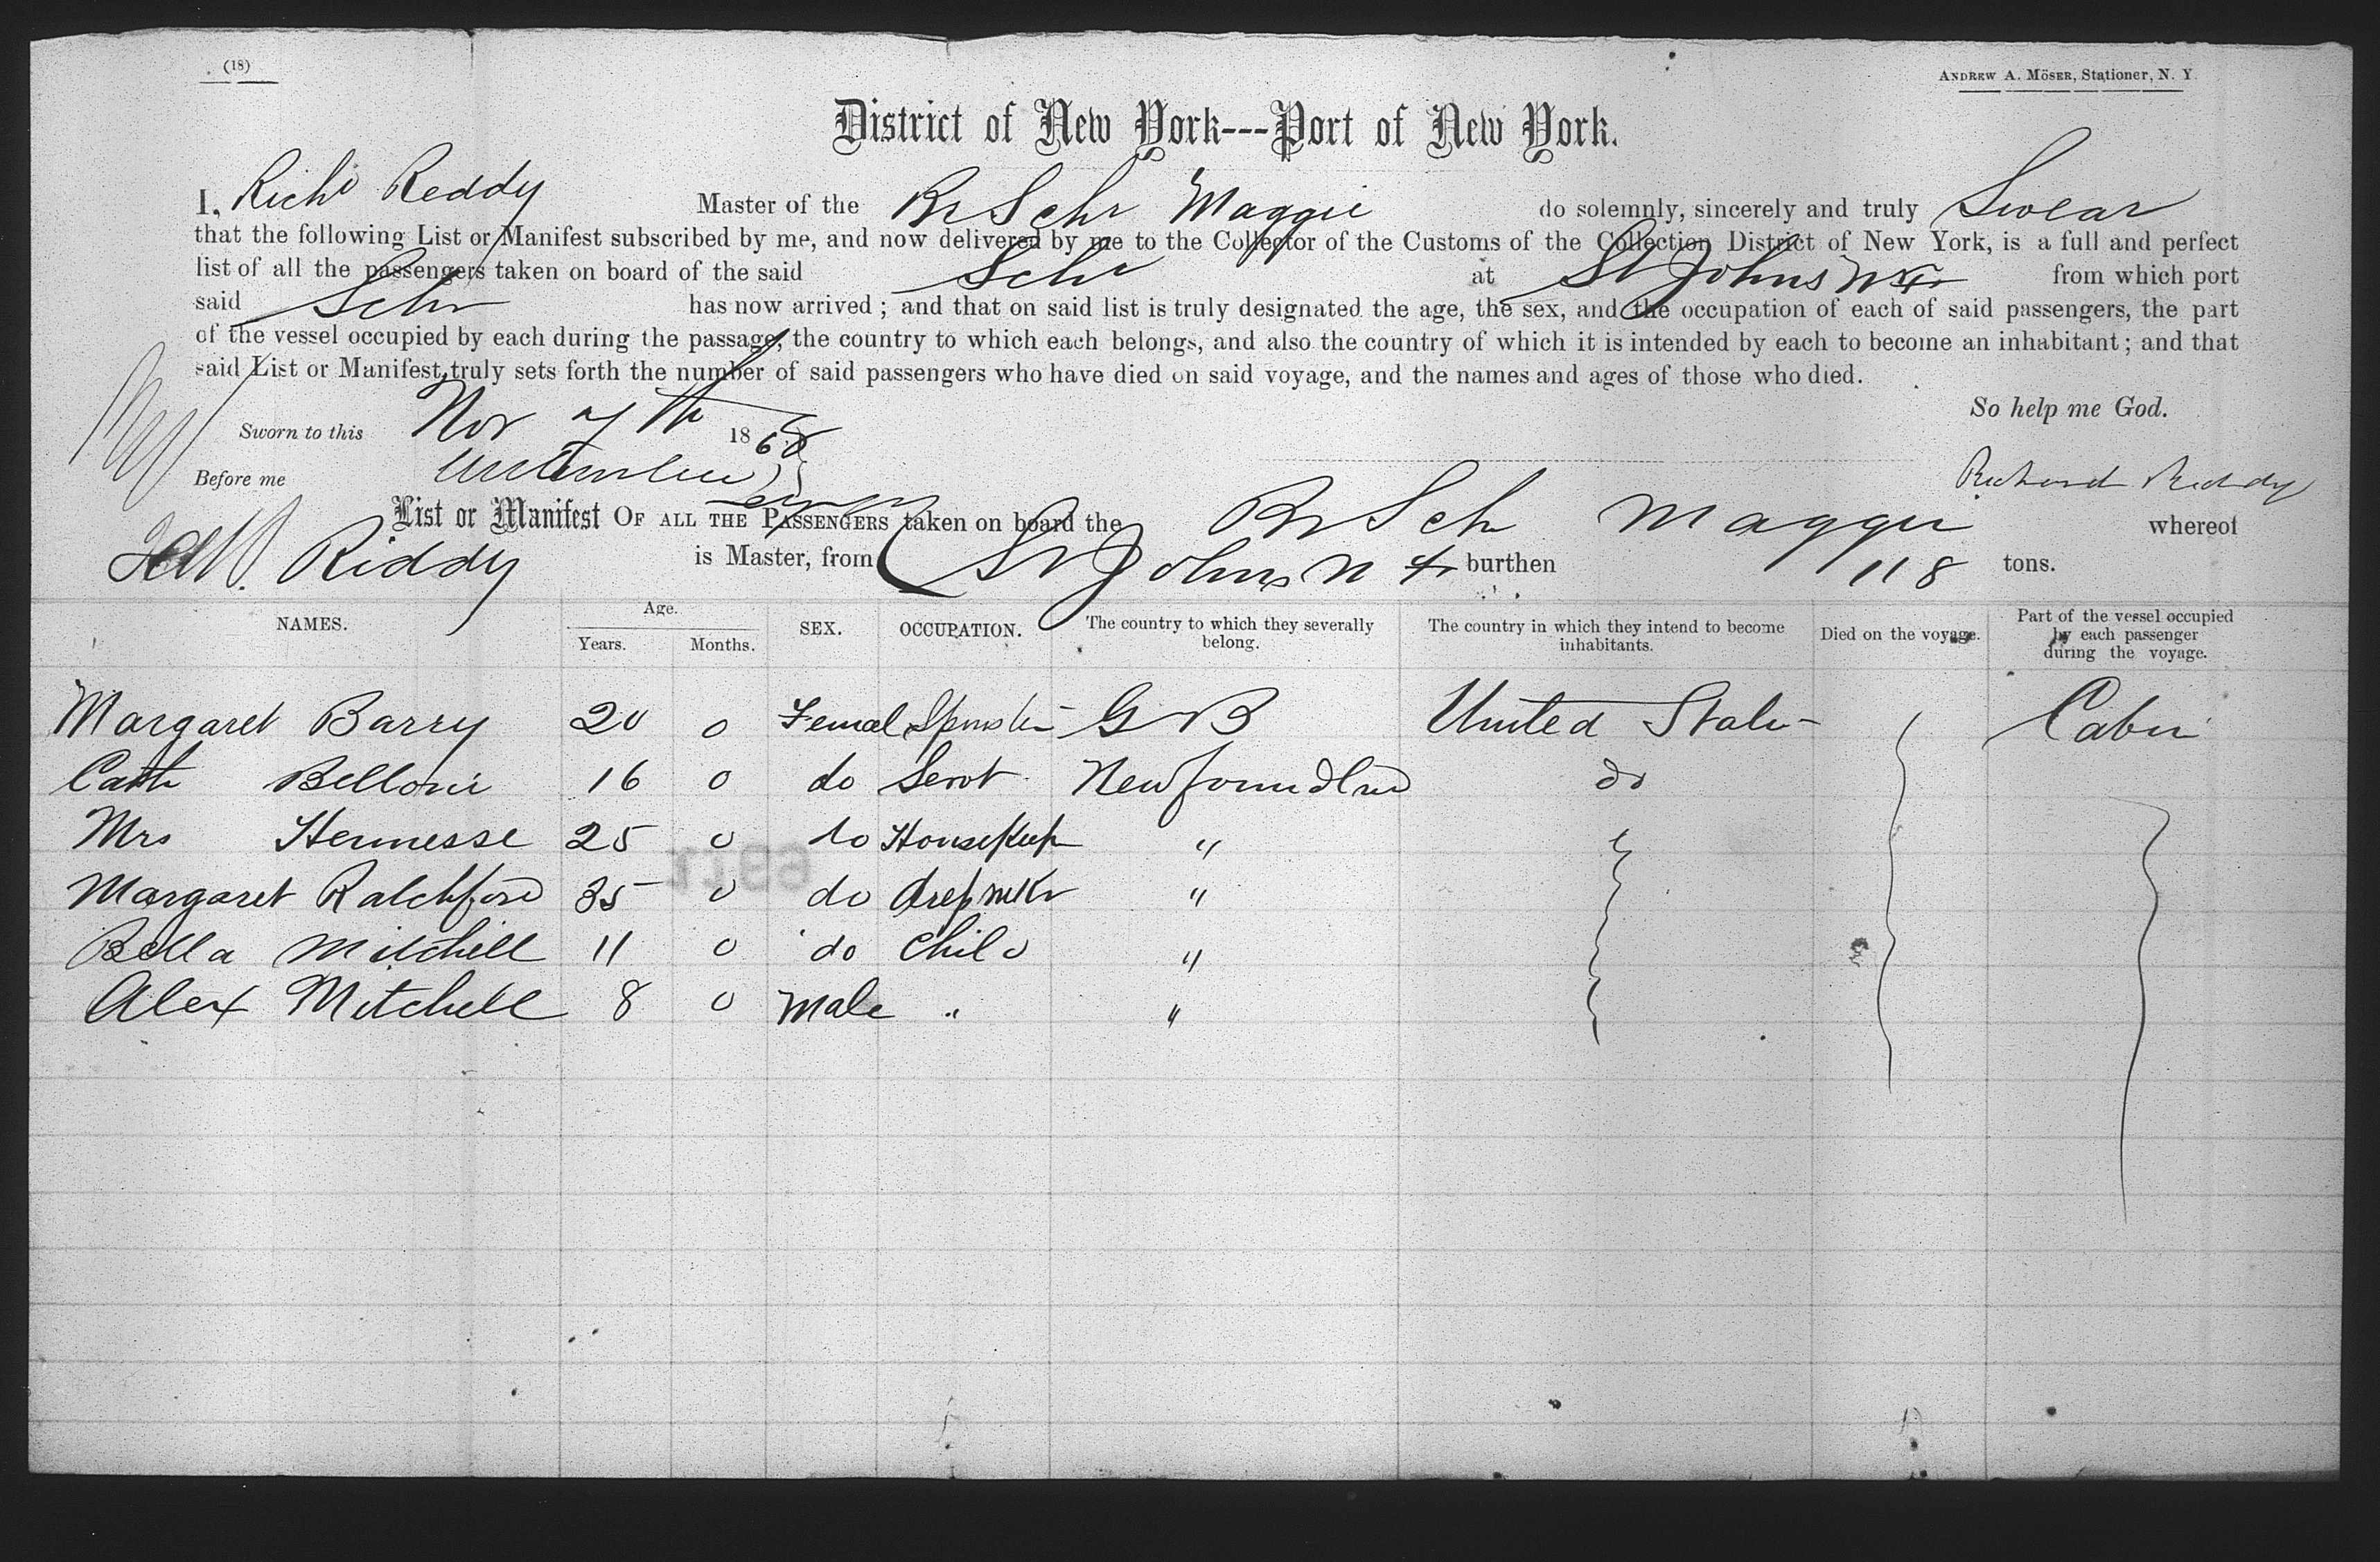 (18)
ANDREW A. MÖSER, Stationer, N. Y.
District of New York---Port of New York.
I, Richd Reddy Master of the Br Schr Maggie do solemnly, sincerely and truly Swear
that the following List or Manifest subscribed by me, and now delivered by me to the Collector of the Customs of the Collection District of New York, is a full and perfect
list of all the passengers taken on board of the said Schr at St Johns NF from which port
said Schr has now arrived; and that on said list is truly designated the age, the sex, and the occupation of each of said passengers, the part
of the vessel occupied by each during the passage, the country to which each belongs, and also the country of which it is intended by each to become an inhabitant; and that
said List or Manifest truly sets forth the number of said passengers who have died on said voyage, and the names and ages of those who died.
So help me God.
Sworn to this Nov 7th 1868
Before me
Richard Reddy
List or Manifest OF ALL THE PASSENGERS taken on board the Br Sch Maggie whereof
Reddy is Master, from St Johns N F burthen 118 tons.
NAMES. Age. Years. Months. SEX. OCCUPATION. The country to which they severally belong. The country in which they intend to become inhabitants. Died on the voyage. Part of the vessel occupied by each passenger during the voyage.
Margaret Barry 20 0 Femal Spinster G B United States Cabin
Cath Bellonie 16 0 do Servt Newfoundlnd do
Mrs Hennesse 25 0 do Housekeep "
Margaret Ratchford 35 0 do dresmkr "
Bella Mitchell 11 0 do Child "
Alex Mitchell 8 0 Male " "